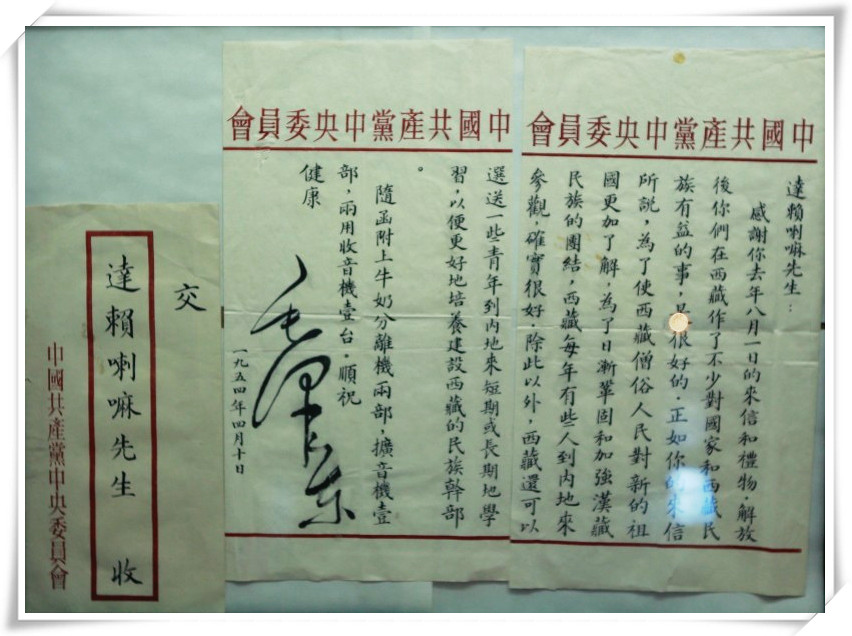 中國共產黨中央委員會
達賴喇嘛先生：
感謝你去年八月一日的來信和禮物．解放
後你們在西藏作了不少對國家和西藏民
族有益的事，很好的．正如你的來信
所說，為了使西藏僧俗人民對新的祖
國更加了解，為了日漸鞏固和加強漢藏
民族的團結，西藏每年有些人到內地來
參觀，確實很好．除此以外，西藏還可以
中國共產黨中央委員會
選送一些青年到內地來短期或長期地學
習，以便更好地培養建設西藏的民族幹部
。
隨函附上牛奶分離機兩部，擴音機壹
部，兩用收音機壹台．順祝
健康
毛澤东
一九五四年四月十日
交
達賴喇嘛先生 收
中國共產黨中央委員會